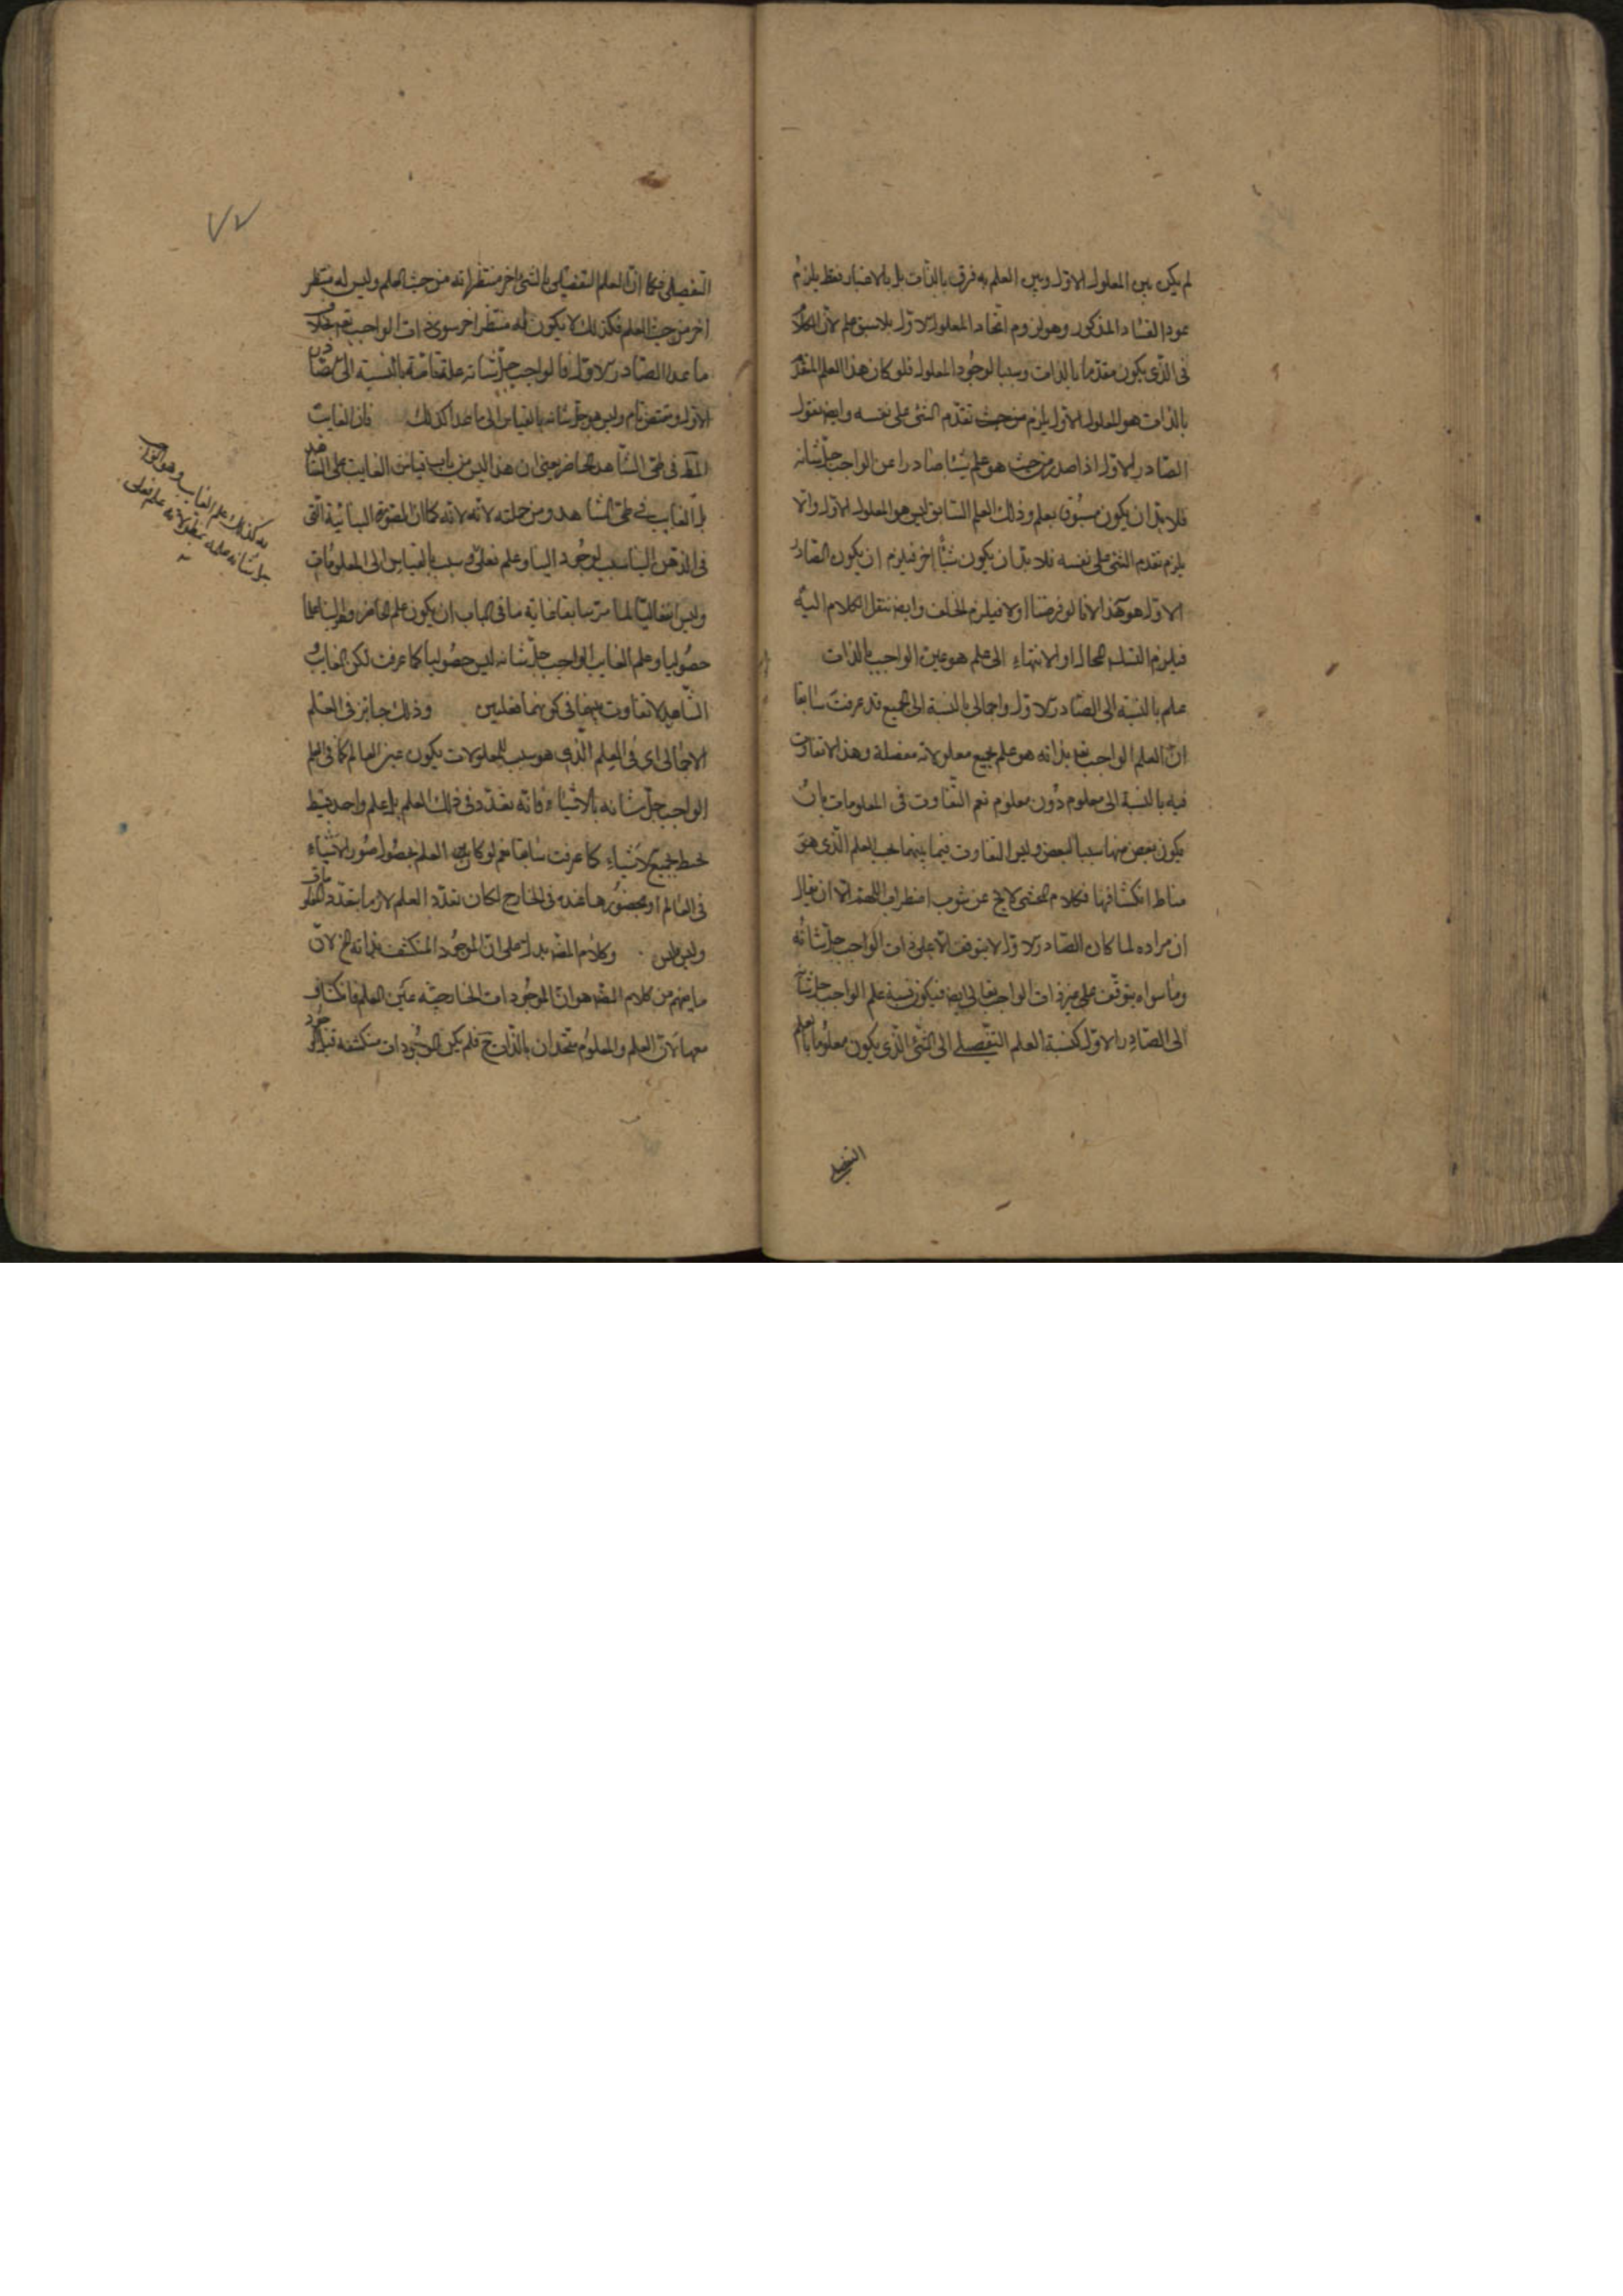 لم يكن بين المعلول الاول وبين العلم به فرق بالذات بل بالاعتبار فقط يلزم
عود الفساد المذكور وهو لزوم اتحاد المعلول الاول بلا سبق علم لان الكلام
فى الذى يكون مقدما بالذات وسببا لوجود المعلول فلو كان هذا العلم المقدم
بالذات هو المعلول الاول يلزم من حيث تقدم الشئ على نفسه وايضا نقول
الصادر الاول اذا صدر من حيث هو علم شيئا صادرا عن الواجب جل شانه
فلا بد ان يكون مسبوق بعلم وذلك العلم السابق ليس هو المعلول الاول والا
يلزم تقدم الشئ على نفسه فلا بد ان يكون شيئا اخر فيلزم ان يكون الصادر
الاول هو هذا لا ما لو فرضنا اولا فيلزم الخلف وايضا ننقل الكلام اليه
فيلزم التسلسل المحال او الانتهاء الى علم هو عين الواجب بالذات
علم بالنسبة الى الصادر الاول واجمالى بالنسبة الى الجميع قد عرفت سابقا
ان العلم الواجب تعا بذاته هو علم بجميع معلولاته مفصلة وهذا لا تفاوت
فيه بالنسبة الى معلوم دون معلوم نعم التفاوت فى المعلومات بان
يكون بعض منها سببا لبعض وليس التفاوت فيما بينهما بحسب العلم الذى هو
مناط انكشافها فكلام المحشى لا يخ عن شوب اضطراب اللهم الا ان يقال
ان مراده لما كان الصادر الاول لا يتوقف الا على ذات الواجب جل شانه
وما سواه يتوقف على غير ذات الواجب تعالى ايضا فيكون نسبة علم الواجب جل شانه
الى الصادر الاول كنسبة العلم التفصيلى الى الشئ الذى يكون معلوما بالعلم
التفصيلى
التفصيلى فكما ان العلم التفصيلى بالشئ اخر منتظراته من حيث العلم وليس له منتظر
اخر من حيث العلم فكذلك لا يكون له منتظر اخر سوى ذات الواجب تعم بخلاف
ما عدا الصادر الاول فالواجب جل شانه علة تامة بالنسبة الى الصادر
الاول ومقتض تام وليس هو جل شانه بالقياس الى ما عدا كذلك فان الغايب
فى طى الشاهد الحاضر يعنى ان هذا ليس من باب قياس الغايب على الشاهد
بل الغايب فى طى الشاهد ومن جملته لانه لانه كما ان الصورة البنائية التى
فى الذهن البنا سبب لوجود البنا وعلم فعلى وسبب بالقياس الى المعلومات
وليس انفعاليا لما مر سابقا غاية ما فى الباب ان يكون علم الحاضر وهو البنا علما
حصوليا وعلم الغايب الواجب جل شانه ليس حصوليا كما عرفت لكن الغايب
الشاهد لا تفاوت بينهما فى كونهما فعليين وذلك جائز فى العلم
الاجمالى اى فى العلم الذى هو سبب للمعلولات يكون عين العالم كما فى علم
الواجب جل شانه بالاشياء فانه تعدد فى ذلك العلم بل علم واحد بسيط
محيط بجميع الاشياء كما عرفت سابقا نعم لو كان العلم بحصول صور الاشياء
فى العالم او بحضورها عنده فى الخارج لكان تعدد العلم لازما بتعدد المعلومات
وليس ليس وكلام المص يدل على ان الموجود المنكشف بذاته الخ لان
ما يفهم من كلام المص هو ان الموجودات الخارجية عين العلم فانكشاف
معها لان العلم والمعلوم متحدان بالذات ح فلم يكن الموجودات منكشفة قبل
كذلك علم الغايب وهو الواجب
جل شانه علمه علم فعلى
٧٧